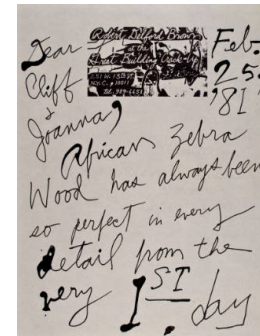 Dear
Cliff
&
Joanna,
Robert Delford Brown
at the
Great Building Crack-Up
Feb.
25
'81
African Zebra
Wood has always been
so perfect in every
detail from the
very 1ST day